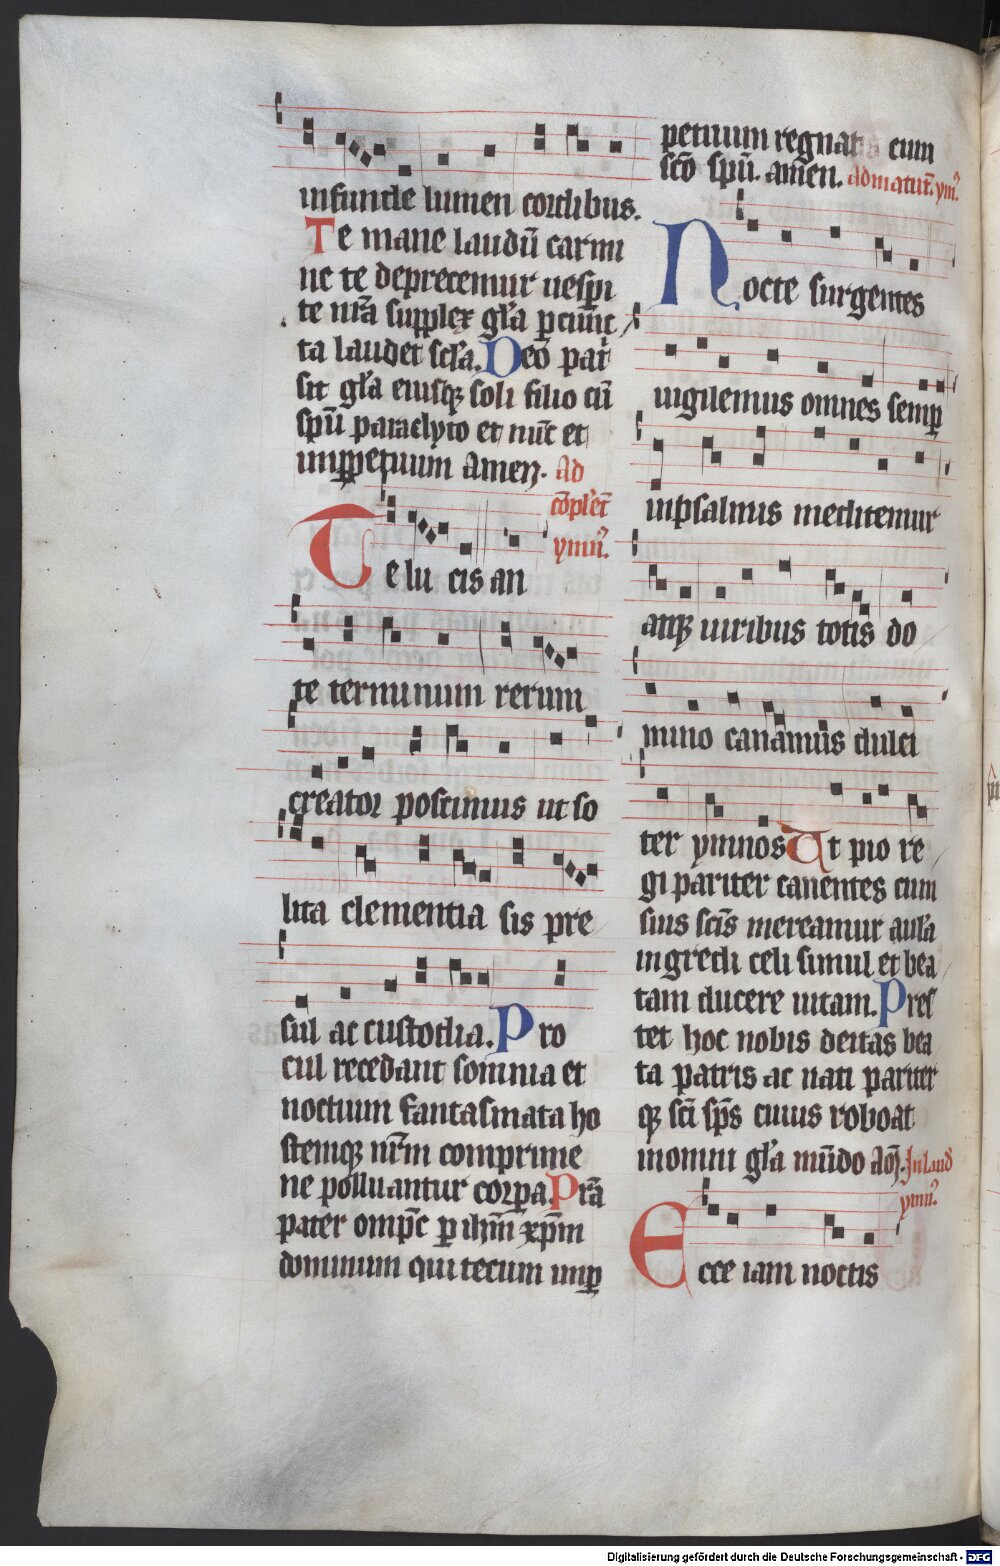 infunde lumen cordibus.
Te mane laudū carmi
ne te deprecemur uesꝑi
te nr̄a supplex gl̄a ꝑ cūnc
ta laudet sc̄la. Deo pat̄i
sit gl̄a eiusqꝫ soli filio cū
spū paraclyto et nūc et
inꝑpetuum amen. Ad
cōplet̄
ymn̄ꝰ
Te lu cis an
te terminum rerum
creator poscimus ut so
lita clementia sis pre
sul ac custodia. Pro
cul recedant somnia et
noctium fantasmata ho
stemqꝫ nr̄m comprime
ne polluantur corpa. Pr̄a
pater omp̄c ꝑ ihm̄ xp̄m
dominum qui tecum inꝑ
petuum regnat cum
sc̄o spū. amen. Admatut̄. ymꝰ
Nocte surgentes
uigilemus omnes semꝑ
inpsalmis meditemur
atqꝫ uiribus totis do
mino canamus dulci
ter ymnos Ut pio re
gi pariter canentes cum
suis sc̄is mereamur aula
ingredi celi simul et bea
tam ducere uitam. Pres
tet hoc nobis deitas bea
ta patris ac nati pariter
qꝫ sc̄i sp̄s cuius roboat
inomni gl̄a mūdo am̄. In laud
ymn̄ꝰ
Ecce iam noctis
Digitalisierung gefördert durch die Deutsche Forschungsgemeinschaft - DFG